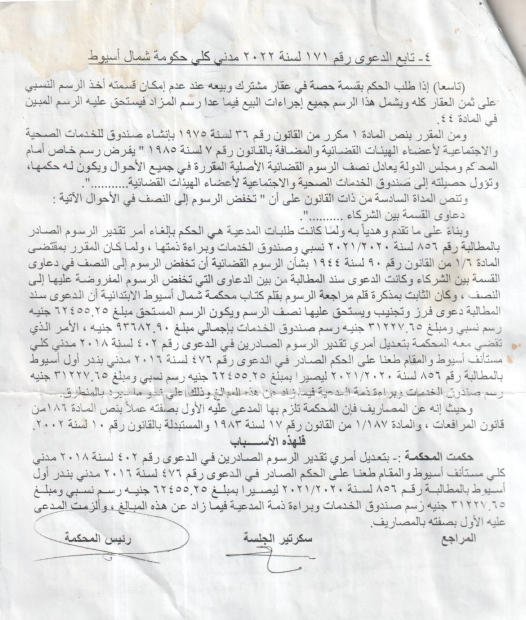 ٤- تابع الدعوى رقم ١٧١ لسنة ٢٠٢٢ مدني كلي حكومة شمال أسيوط
(تاسعا) إذا طلب الحكم بقسمة حصة في عقار مشترك وبيعه عند عدم إمكان قسمته أخذ الرسم النسبي
على ثمن العقار كله ويشمل هذا الرسم جميع إجراءات البيع فيما عدا رسم المزاد فيستحق عليه الرسم المبين
في المادة ٤٤.
ومن المقرر بنص المادة ١ مكرر من القانون رقم ٣٦ لسنة ١٩٧٥ بإنشاء صندوق للخدمات الصحية
والاجتماعية لأعضاء الهيئات القضائية والمضافة بالقانون رقم ٧ لسنة ١٩٨٥ "يفرض رسم خاص أمام
المحاكم ومجلس الدولة يعادل نصف الرسوم القضائية الأصلية المقررة في جميع الأحوال ويكون له حكمها،
وتؤول حصيلته إلى صندوق الخدمات الصحية والاجتماعية لأعضاء الهيئات القضائية..........".
وتنص المداة السادسة من ذات القانون على أن " تخفض الرسوم إلى النصف في الأحوال الآتية :
دعاوى القسمة بين الشركاء ..........".
وبناءً على ما تقدم وهدياً به ولما كانت طلبات المدعية هي الحكم بإلغاء أمر تقدير الرسوم الصادر
بالمطالبة رقم ٨٥٦ لسنة ٢٠٢١/٢٠٢٠ نسبي وصندوق الخدمات وبراءة ذمتها ، ولما كان المقرر بمقتضى
المادة ١/٦ من القانون رقم ٩٠ لسنة ١٩٤٤ بشأن الرسوم القضائية أن تخفض الرسوم إلى النصف في دعاوى
القسمة بين الشركاء وكانت الدعوى سند المطالبة من بين الدعاوى التي تخفض الرسوم المفروضة عليها إلى
النصف ، وكان الثابت بمذكرة قلم مراجعة الرسوم بقلم كتاب محكمة شمال أسيوط الابتدائية أن الدعوى سند
المطالبة دعوى فرز وتجنيب ويستحق عليها نصف الرسم ويكون الرسم المستحق مبلغ ٦٢٤٥٥.٢٥ جنيه
رسم نسبي ومبلغ ٣١٢٢٧.٦٥ جنيه رسم صندوق الخدمات بإجمالي مبلغ ٩٣٦٨٢.٩٠ جنيه ، الأمر الذي
تقضي معه المحكمة بتعديل أمري تقدير الرسوم الصادرين في الدعوى رقم ٤٠٢ لسنة ٢٠١٨ مدني كلي
مستأنف أسيوط والمقام طعنا على الحكم الصادر في الدعوى رقم ٤٧٦ لسنة ٢٠١٦ مدني بندر أول أسيوط
بالمطالبة رقم ٨٥٦ لسنة ٢٠٢١/٢٠٢٠ ليصيرا بمبلغ ٦٢٤٥٥.٢٥ جنيه رسم نسبي ومبلغ ٣١٢٢٧.٦٥ جنيه
رسم صندوق الخدمات وبراءة ذمة المدعية فيما زاد عن هذه المبالغ وذلك على نحو ما سيرد بالمنطوق.
وحيث إنه عن المصاريف فإن المحكمة تلزم بها المدعى عليه الأول بصفته عملاً بنص المادة ١٨٦ من
قانون المرافعات ، والمادة ١/١٨٧ من القانون رقم ١٧ لسنة ١٩٨٣ والمستبدلة بالقانون رقم ١٠ لسنة ٢٠٠٢.
فلهذه الأسباب
حكمت المحكمة :- بتعديل أمري تقدير الرسوم الصادرين في الدعوى رقم ٤٠٢ لسنة ٢٠١٨ مدني
كلي مستأنف أسيوط والمقام طعنا على الحكم الصادر في الدعوى رقم ٤٧٦ لسنة ٢٠١٦ مدني بندر أول
أسيوط بالمطالبة رقم ٨٥٦ لسنة ٢٠٢١/٢٠٢٠ ليصيرا بمبلغ ٦٢٤٥٥.٢٥ جنيه رسم نسبي ومبلغ
٣١٢٢٧.٦٥ جنيه رسم صندوق الخدمات وبراءة ذمة المدعية فيما زاد عن هذه المبالغ ، وألزمت المدعى
عليه الأول بصفته بالمصاريف.
المراجع سكرتير الجلسة رئيس المحكمة